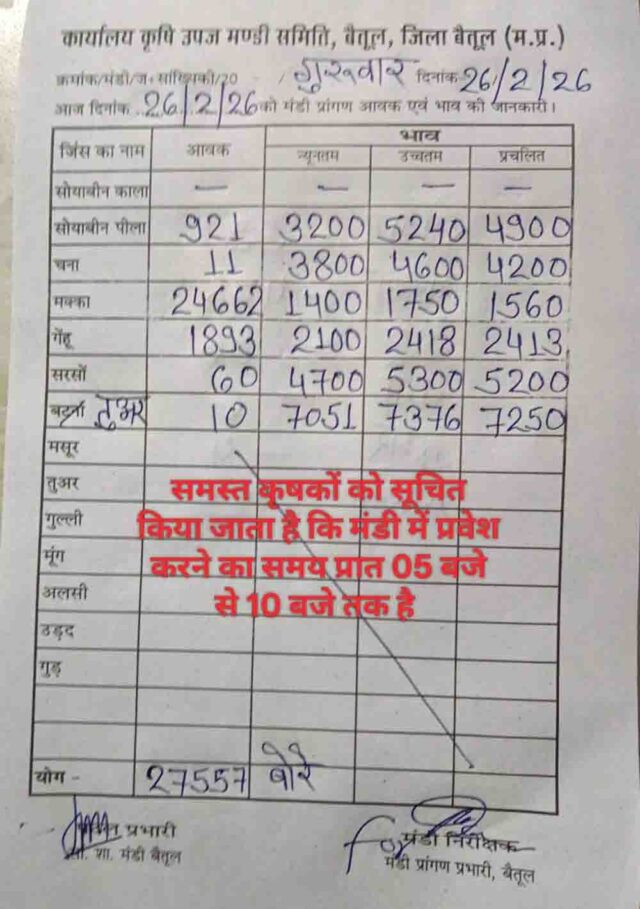 कार्यालय कृषि उपज मण्डी समिति, बैतूल, जिला बैतूल (म.प्र.)
क्रमांक/मंडी/ज॰ सांख्यिकी/20 - / गुरूवार दिनांक 26/2/26
आज दिनांक 26/2/26 को मंडी प्रांगण आवक एवं भाव की जानकारी।
जिंस का नाम आवक भाव
न्यूनतम उच्चतम प्रचलित
सोयाबीन काला — — — —
सोयाबीन पीला 921 3200 5240 4900
चना 11 3800 4600 4200
मक्का 24662 1400 1750 1560
गेंहू 1893 2100 2418 2413
सरसों 60 4700 5300 5200
बटर्ना तुअर 10 7051 7376 7250
मसूर
तुअर
गुल्ली
मूंग
अलसी
उड़द
गुड़
समस्त कृषकों को सूचित
किया जाता है कि मंडी में प्रवेश
करने का समय प्रात 05 बजे
से 10 बजे तक है
योग - 27557 बोरे
प्रभारी
शा. मंडी बैतूल
For मंडी निरीक्षक
मंडी प्रांगण प्रभारी, बैतूल